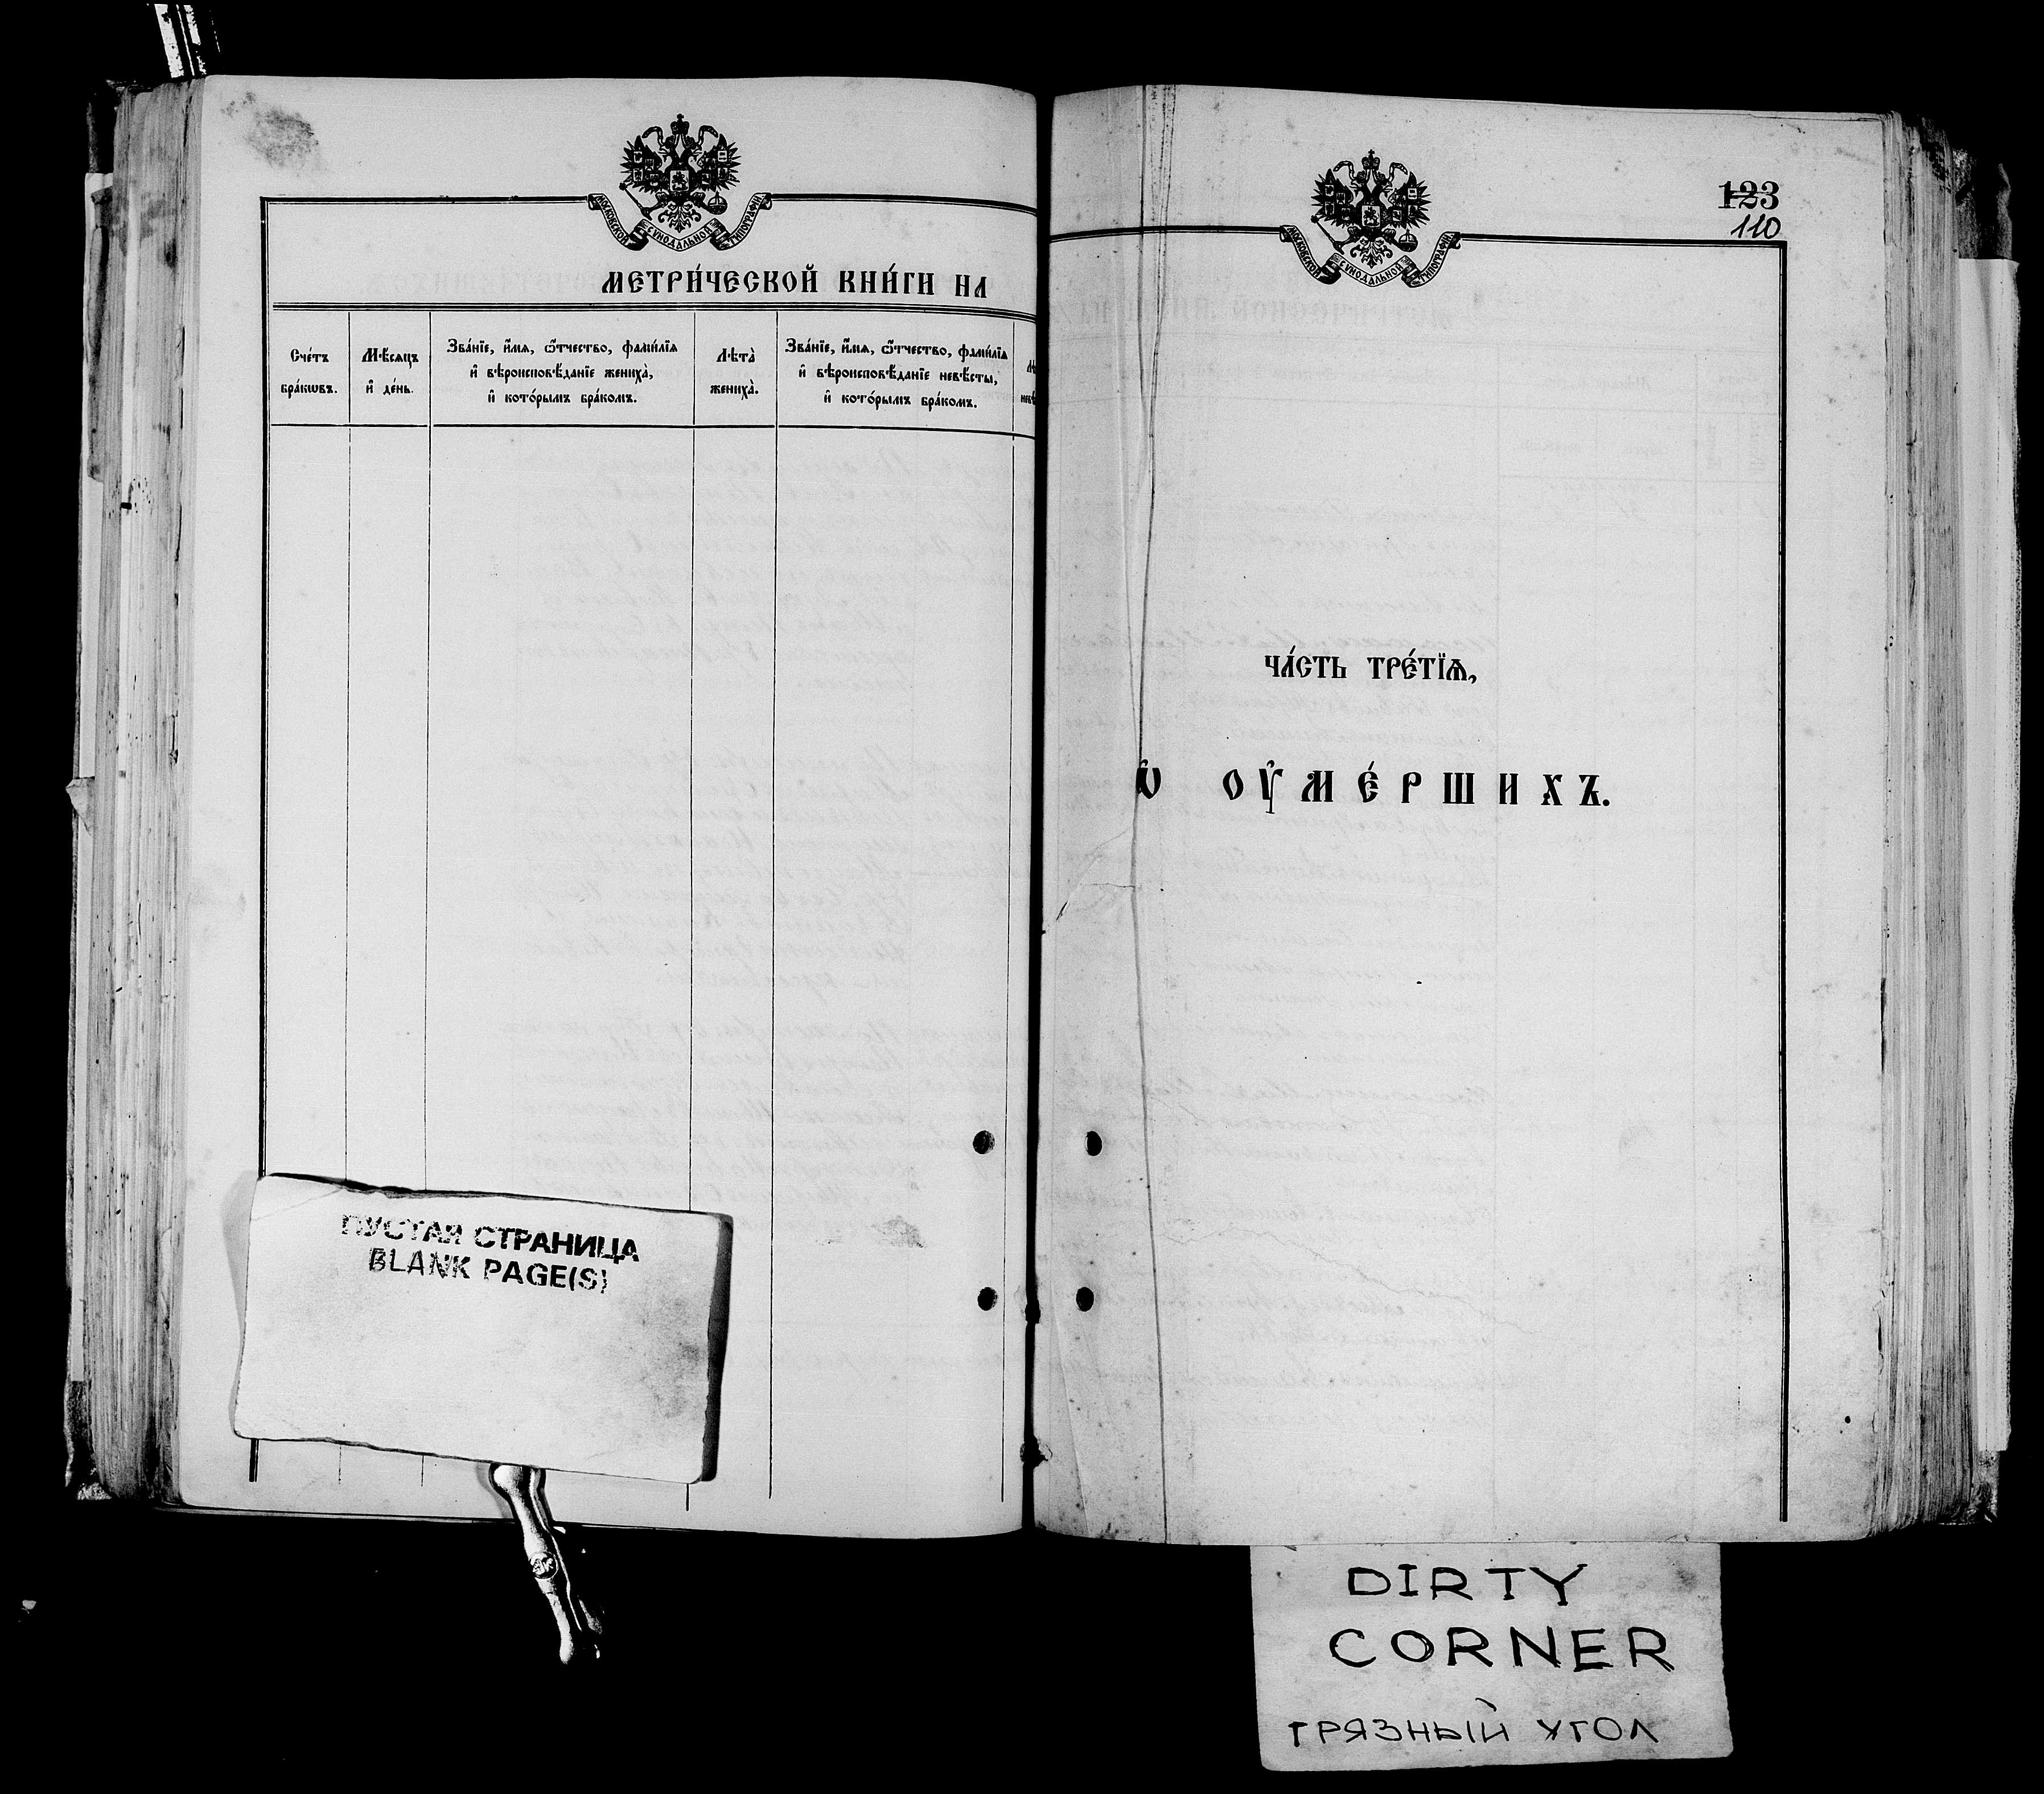 МОСКОВСКОЙ СѴНОДАЛЬНОЙ ТИПОГРАФІИ
МЕТРИ́ЧЕСКОЙ КНИ́ГИ НА
Сче́тъ
бра́кѡвъ.
Мѣ́сѧцъ
и҆ де́нь.
Зва́нїе, и҆́мѧ, ѻ҆́тчество, фами́лїѧ
и҆ вѣроисповѣ́данїе жениха̀,
и҆ кото́рымъ бра́комъ.
Лѣта̀
жениха̀.
Зва́нїе, и҆́мѧ, ѻ҆́тчество, фами́лїѧ
и҆ вѣроисповѣ́данїе невѣ́сты,
и҆ кото́рымъ бра́комъ.
ПУСТАЯ СТРАНИЦА
BLANK PAGE(S)
123
110
МОСКОВСКОЙ СѴНОДАЛЬНОЙ ТИПОГРАФІИ
ЧА́СТЬ ТРЕ́ТЇѦ,
Ѡ҆ ОУ҆МЕ́РШИХЪ.
DIRTY
CORNER
ГРЯЗНЫЙ УГОЛ